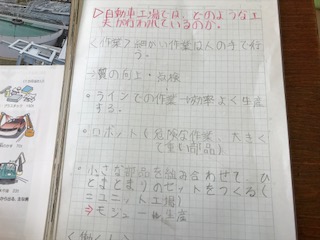 ▷自動車工場では、どのような工
夫が行われているのか。
<作業> 細かい作業は人の手で行
う。
→質の向上・点検
・ラインでの作業→効率よく生産
する。
・ロボット(危険な作業、大きく
て重い部品)
・小さな部品を組み合わせて、ひ
とまとまりのセットをつくる(
ユニット工場)
生産